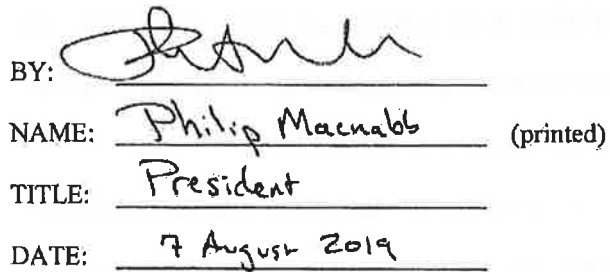 BY:
NAME: Philip Macnabb (printed)
TITLE: President
DATE: 7 August 2019